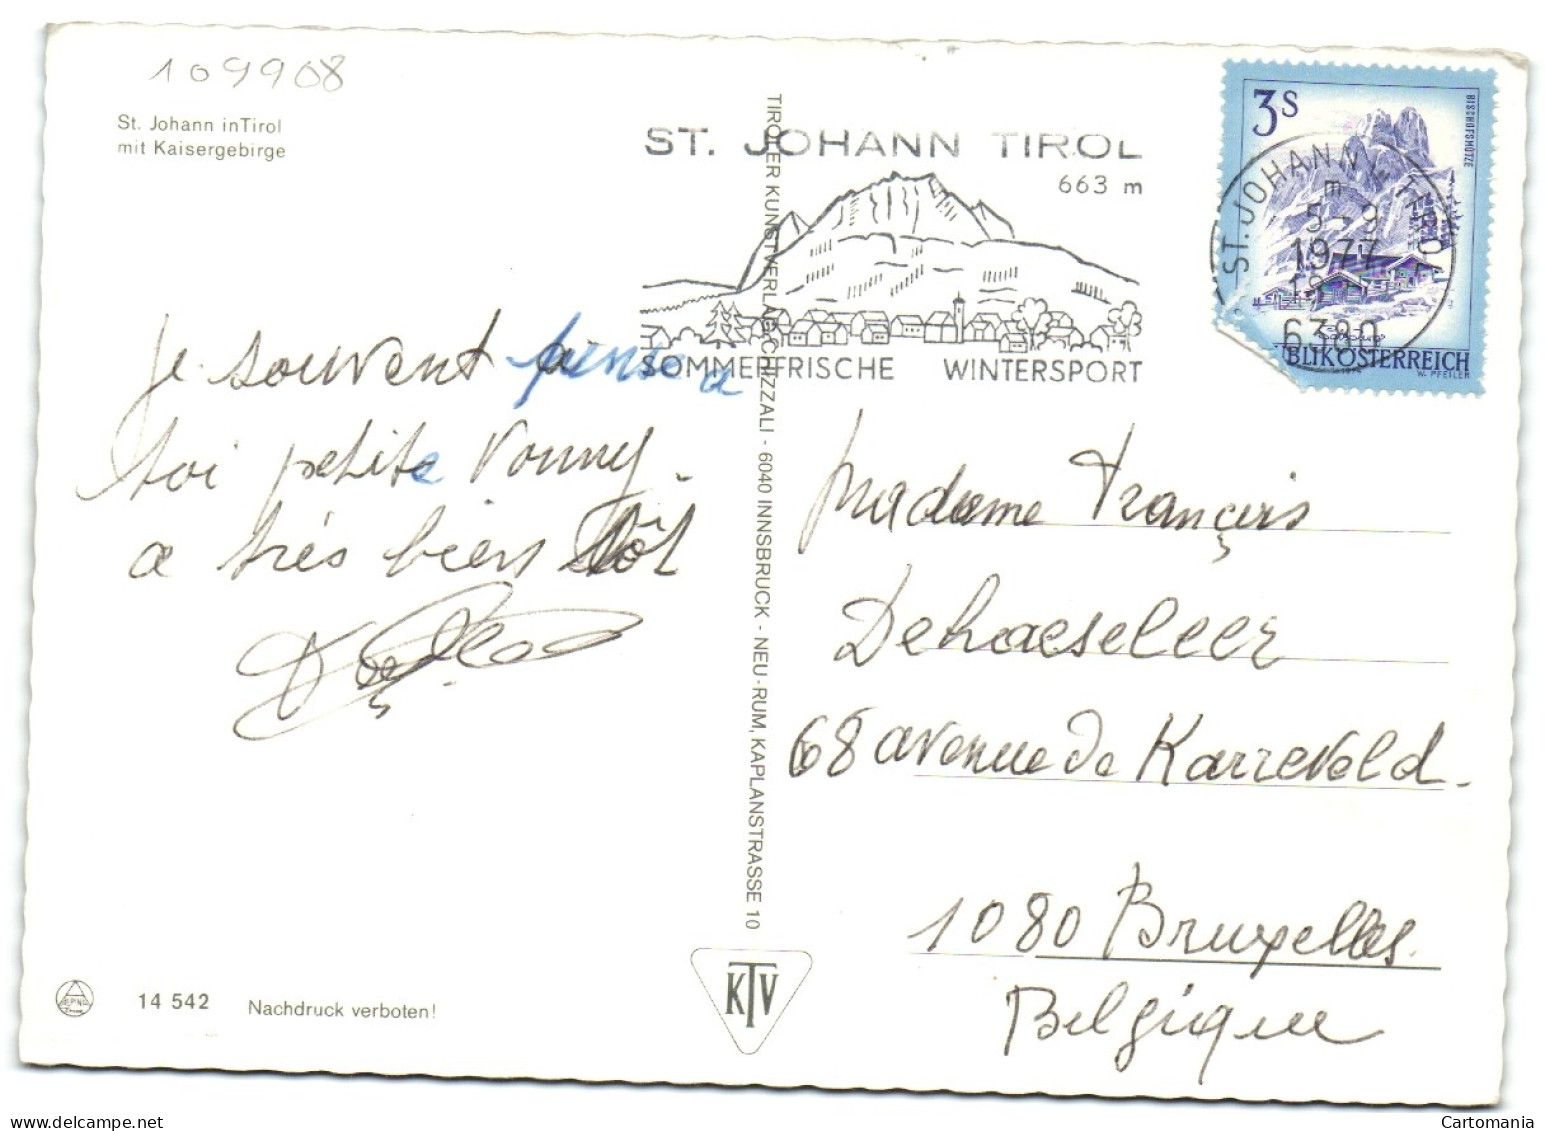 109908
St. Johann inTirol
mit Kaisergebirge
ST. JOHANN TIROL
663 m
SOMMERFRISCHE WINTERSPORT
3S
BISCHOFSMÜTZE
ST. JOHANN I. TIROL
m
5-9
1977
18
6380
REPUBLIK ÖSTERREICH
W. PFEILER
Je souvent pense a
toi petite Vonny.
a très bien tôt
Madame François
Dehaeseleer
68 avenue de Karreveld.
1080 Bruxelles.
Belgique
TIROLER KUNSTVERLAG CHIZZALI - 6040 INNSBRUCK - NEU-RUM, KAPLANSTRASSE 10
KTV
14 542 Nachdruck verboten!
delcampe.net
Cartomania